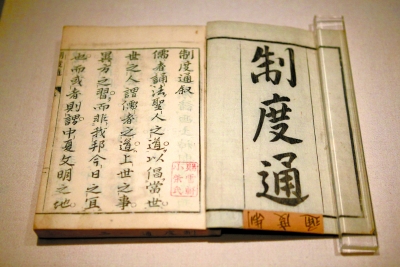 制度通
制度通叙
儒者誦法聖人之道以倡當世
世之人謂儒者之道上世之事
異方之習而非我邦今日之宜
也而或者則謂中夏文明之地
制度通